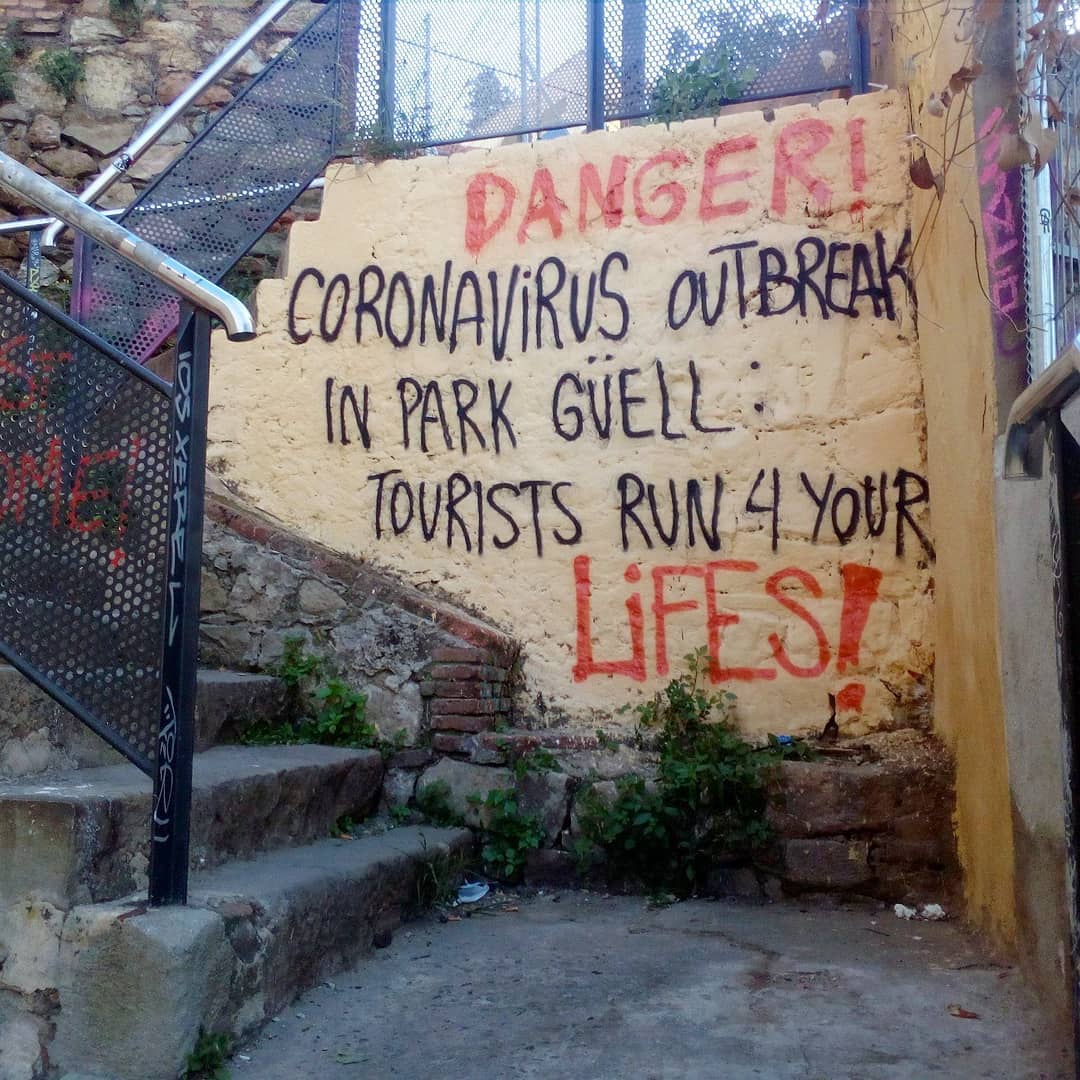 DANGER!
CORONAVIRUS OUTBREAK
IN PARK GÜELL:
TOURISTS RUN 4 YOUR
LIFES!